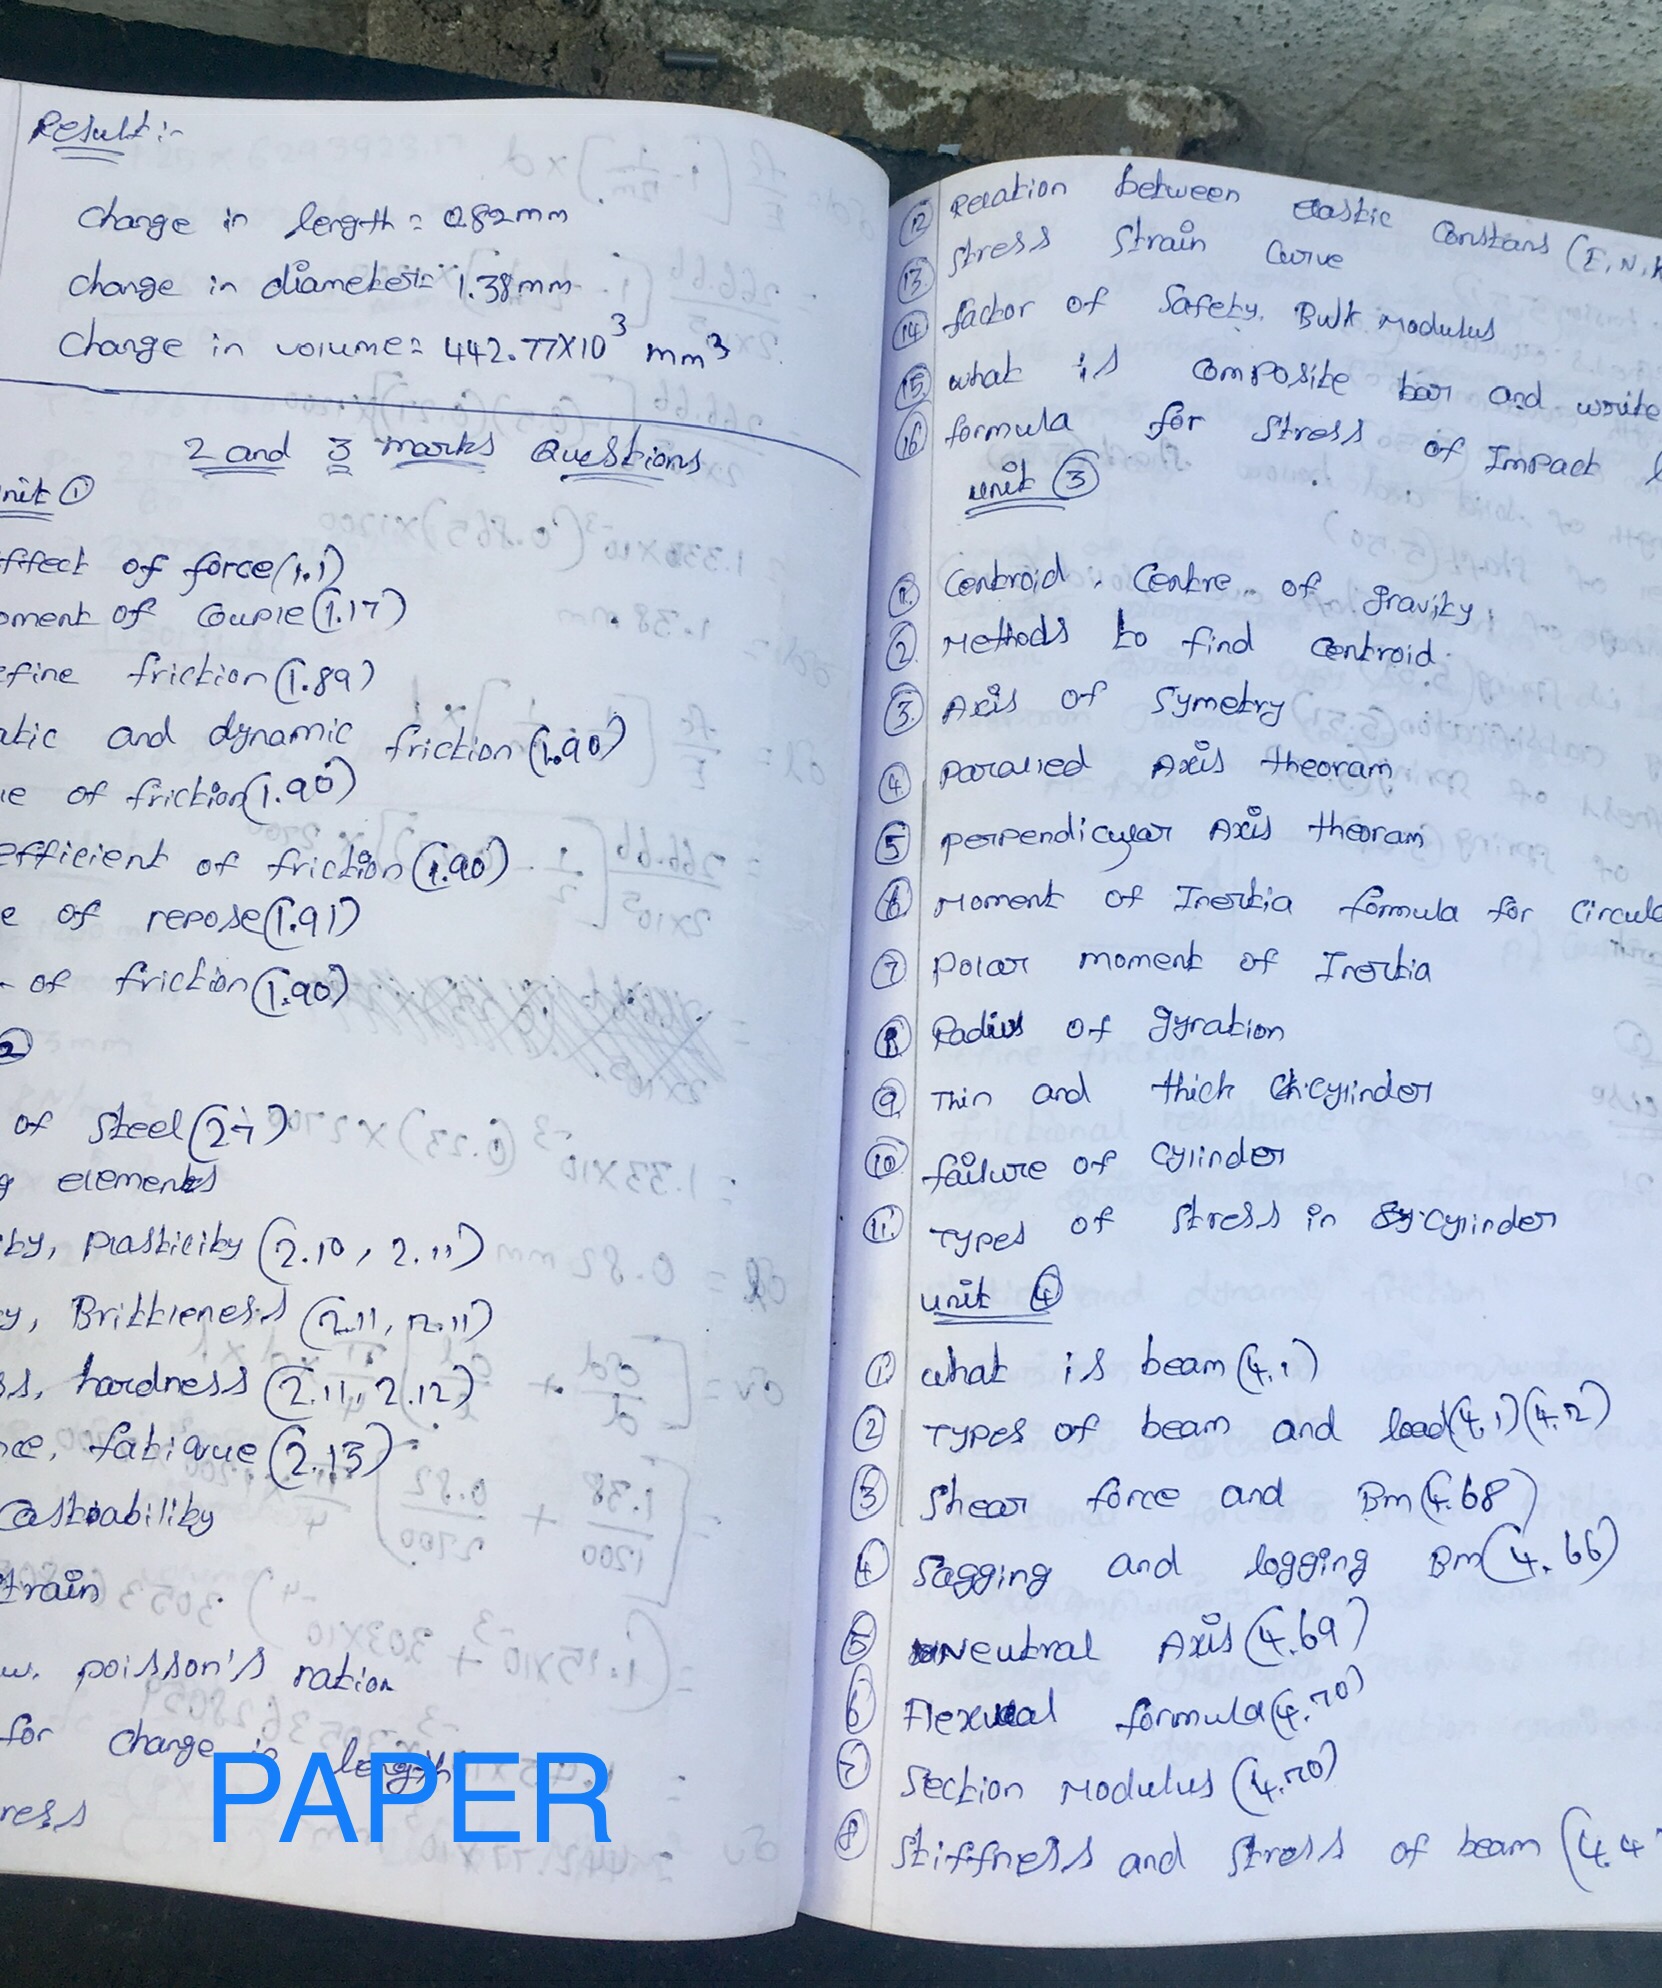 Result:-
change in length = 0.82mm
change in diameter= 1.38mm
change in volume= 442.77X10³ mm³
2 and 3 marks Questions
nit ①
ffect of force(1.1)
oment of couple(1.17)
efine friction(1.89)
atic and dynamic friction(1.90)
le of friction(1.90)
efficient of friction(1.90)
e of repose(1.91)
of friction(1.90)
②
of steel(27)
g elements
ty, Plasticity (2.10, 2.11)
y, Brittleness (2.11, 2.11)
ss, hardness (2.11, 2.12)
nce, fatique (2.13)
castability
train
w. poisson's ration
for change in length
ress
PAPER
⑫ Relation between elastic Constans (E,N,K
⑬ Stress Strain Curve
⑭ factor of Safety. Bulk Modulus
⑮ what is composite bar and write
⑯ formula for stress of Impact l
unit ③
①. Centroid, Centre of gravity,
② Methods to find centroid.
③ Axis of Symetry
④ Paralled Axis theoram
⑤ perpendicular Axis theoram
⑥ Moment of Inertia formula for circula
⑦ Polar moment of Inertia
⑧ Radius of gyration
⑨ Thin and thick cylinder
⑩ failure of cylinder
⑪ Types of stress in cylinder
unit ④
① what is beam(4.1)
② Types of beam and load(4.1)(4.2)
③ Shear force and Bm(4.68)
④ Sagging and logging Bm(4.66)
⑤ Neutral Axis(4.69)
⑥ Flexural formula(4.70)
⑦ Section Modulus (4.70)
⑧ Stiffness and Stress of beam (4.4